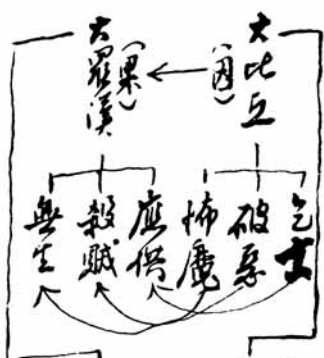 大比丘
(因)
(果)
大羅漢
乞士
破惡
怖魔
應供
殺賊
無生